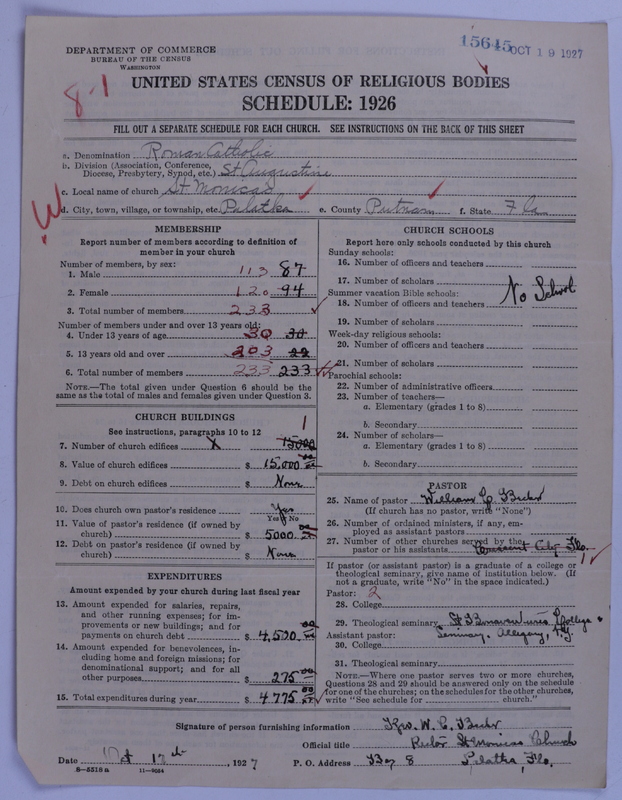 15645 OCT 19 1927
DEPARTMENT OF COMMERCE
BUREAU OF THE CENSUS
WASHINGTON
8-1
UNITED STATES CENSUS OF RELIGIOUS BODIES
SCHEDULE: 1926
FILL OUT A SEPARATE SCHEDULE FOR EACH CHURCH. SEE INSTRUCTIONS ON THE BACK OF THIS SHEET
a. Denomination Roman Catholic
b. Division (Association, Conference, Diocese, Presbytery, Synod, etc.) St Augustine
c. Local name of church St Monicas
d. City, town, village, or township, etc. Palatka e. County Putnam f. State Fla
MEMBERSHIP
Report number of members according to definition of
member in your church
Number of members, by sex:
1. Male 113 87
2. Female 120 94
3. Total number of members 233
Number of members under and over 13 years old:
4. Under 13 years of age 30 30
5. 13 years old and over 203
6. Total number of members 233 233
NOTE.—The total given under Question 6 should be
the same as the total of males and females given under Question 3.
CHURCH BUILDINGS
See instructions, paragraphs 10 to 12 1
7. Number of church edifices X 15000
8. Value of church edifices $ 15,000 00
9. Debt on church edifices $ None
10. Does church own pastor's residence? Yes
Yes or No
11. Value of pastor's residence (if owned by
church) $ 5000 00
12. Debt on pastor's residence (if owned by
church) $ None
EXPENDITURES
Amount expended by your church during last fiscal year
13. Amount expended for salaries, repairs,
and other running expenses; for im-
provements or new buildings; and for
payments on church debt $ 4,500
14. Amount expended for benevolences, in-
cluding home and foreign missions; for
denominational support; and for all
other purposes $ 275 00
15. Total expenditures during year $ 4775 00
CHURCH SCHOOLS
Report here only schools conducted by this church
Sunday schools:
16. Number of officers and teachers
17. Number of scholars
Summer vacation Bible schools: No School
18. Number of officers and teachers
19. Number of scholars
Week-day religious schools:
20. Number of officers and teachers
21. Number of scholars
Parochial schools:
22. Number of administrative officers
23. Number of teachers—
a. Elementary (grades 1 to 8)
b. Secondary
24. Number of scholars—
a. Elementary (grades 1 to 8)
b. Secondary
PASTOR
25. Name of pastor William
(If church has no pastor, write "None")
26. Number of ordained ministers, if any, em-
ployed as assistant pastors
27. Number of other churches served by the
pastor or his assistants Crescent City Fla. 1
If pastor (or assistant pastor) is a graduate of a college or
theological seminary, give name of institution below. (If
not a graduate, write "No" in the space indicated.)
Pastor: 2
28. College
29. Theological seminary St Bonaventures College &
Assistant pastor: Seminary. Allegany, N.Y.
30. College
31. Theological seminary
NOTE.—Where one pastor serves two or more churches,
Questions 28 and 29 should be answered only on the schedule
for one of the churches; on the schedules for the other churches,
write "See schedule for church."
Signature of person furnishing information Rev. W. C.
Official title Rector St Monicas Church
Date Oct 17th, 1927 P. O. Address Box 8 Palatka, Fla.
8-5518 a 11-9054